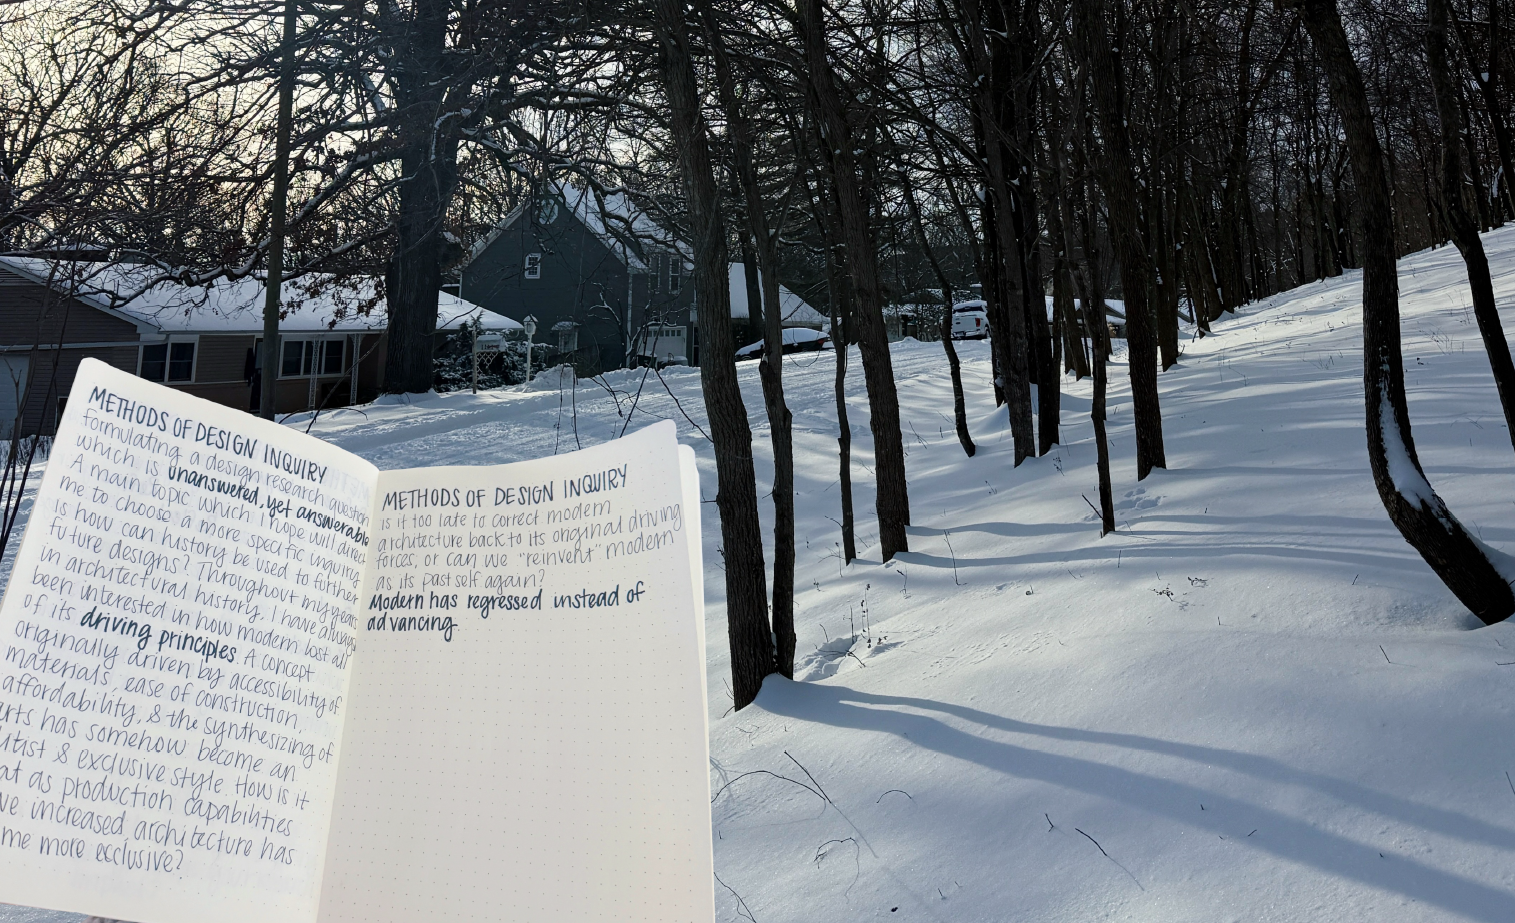 METHODS OF DESIGN INQUIRY
formulating a design research question
which is unanswered, yet answerable
A main topic which I hope will direct
me to choose a more specific inquiry
is how can history be used to further
future designs? Throughout my years
in architectural history, I have always
been interested in how modern lost all
of its driving principles. A concept
originally driven by accessibility of
materials, ease of construction,
affordability, & the synthesizing of
arts has somehow become an
& exclusive style. How is it
as production capabilities
increased, architecture has
more exclusive?
METHODS OF DESIGN INQUIRY
is it too late to correct modern
architecture back to its original driving
forces, or can we "reinvent" modern
as its past self again?
Modern has regressed instead of
advancing.